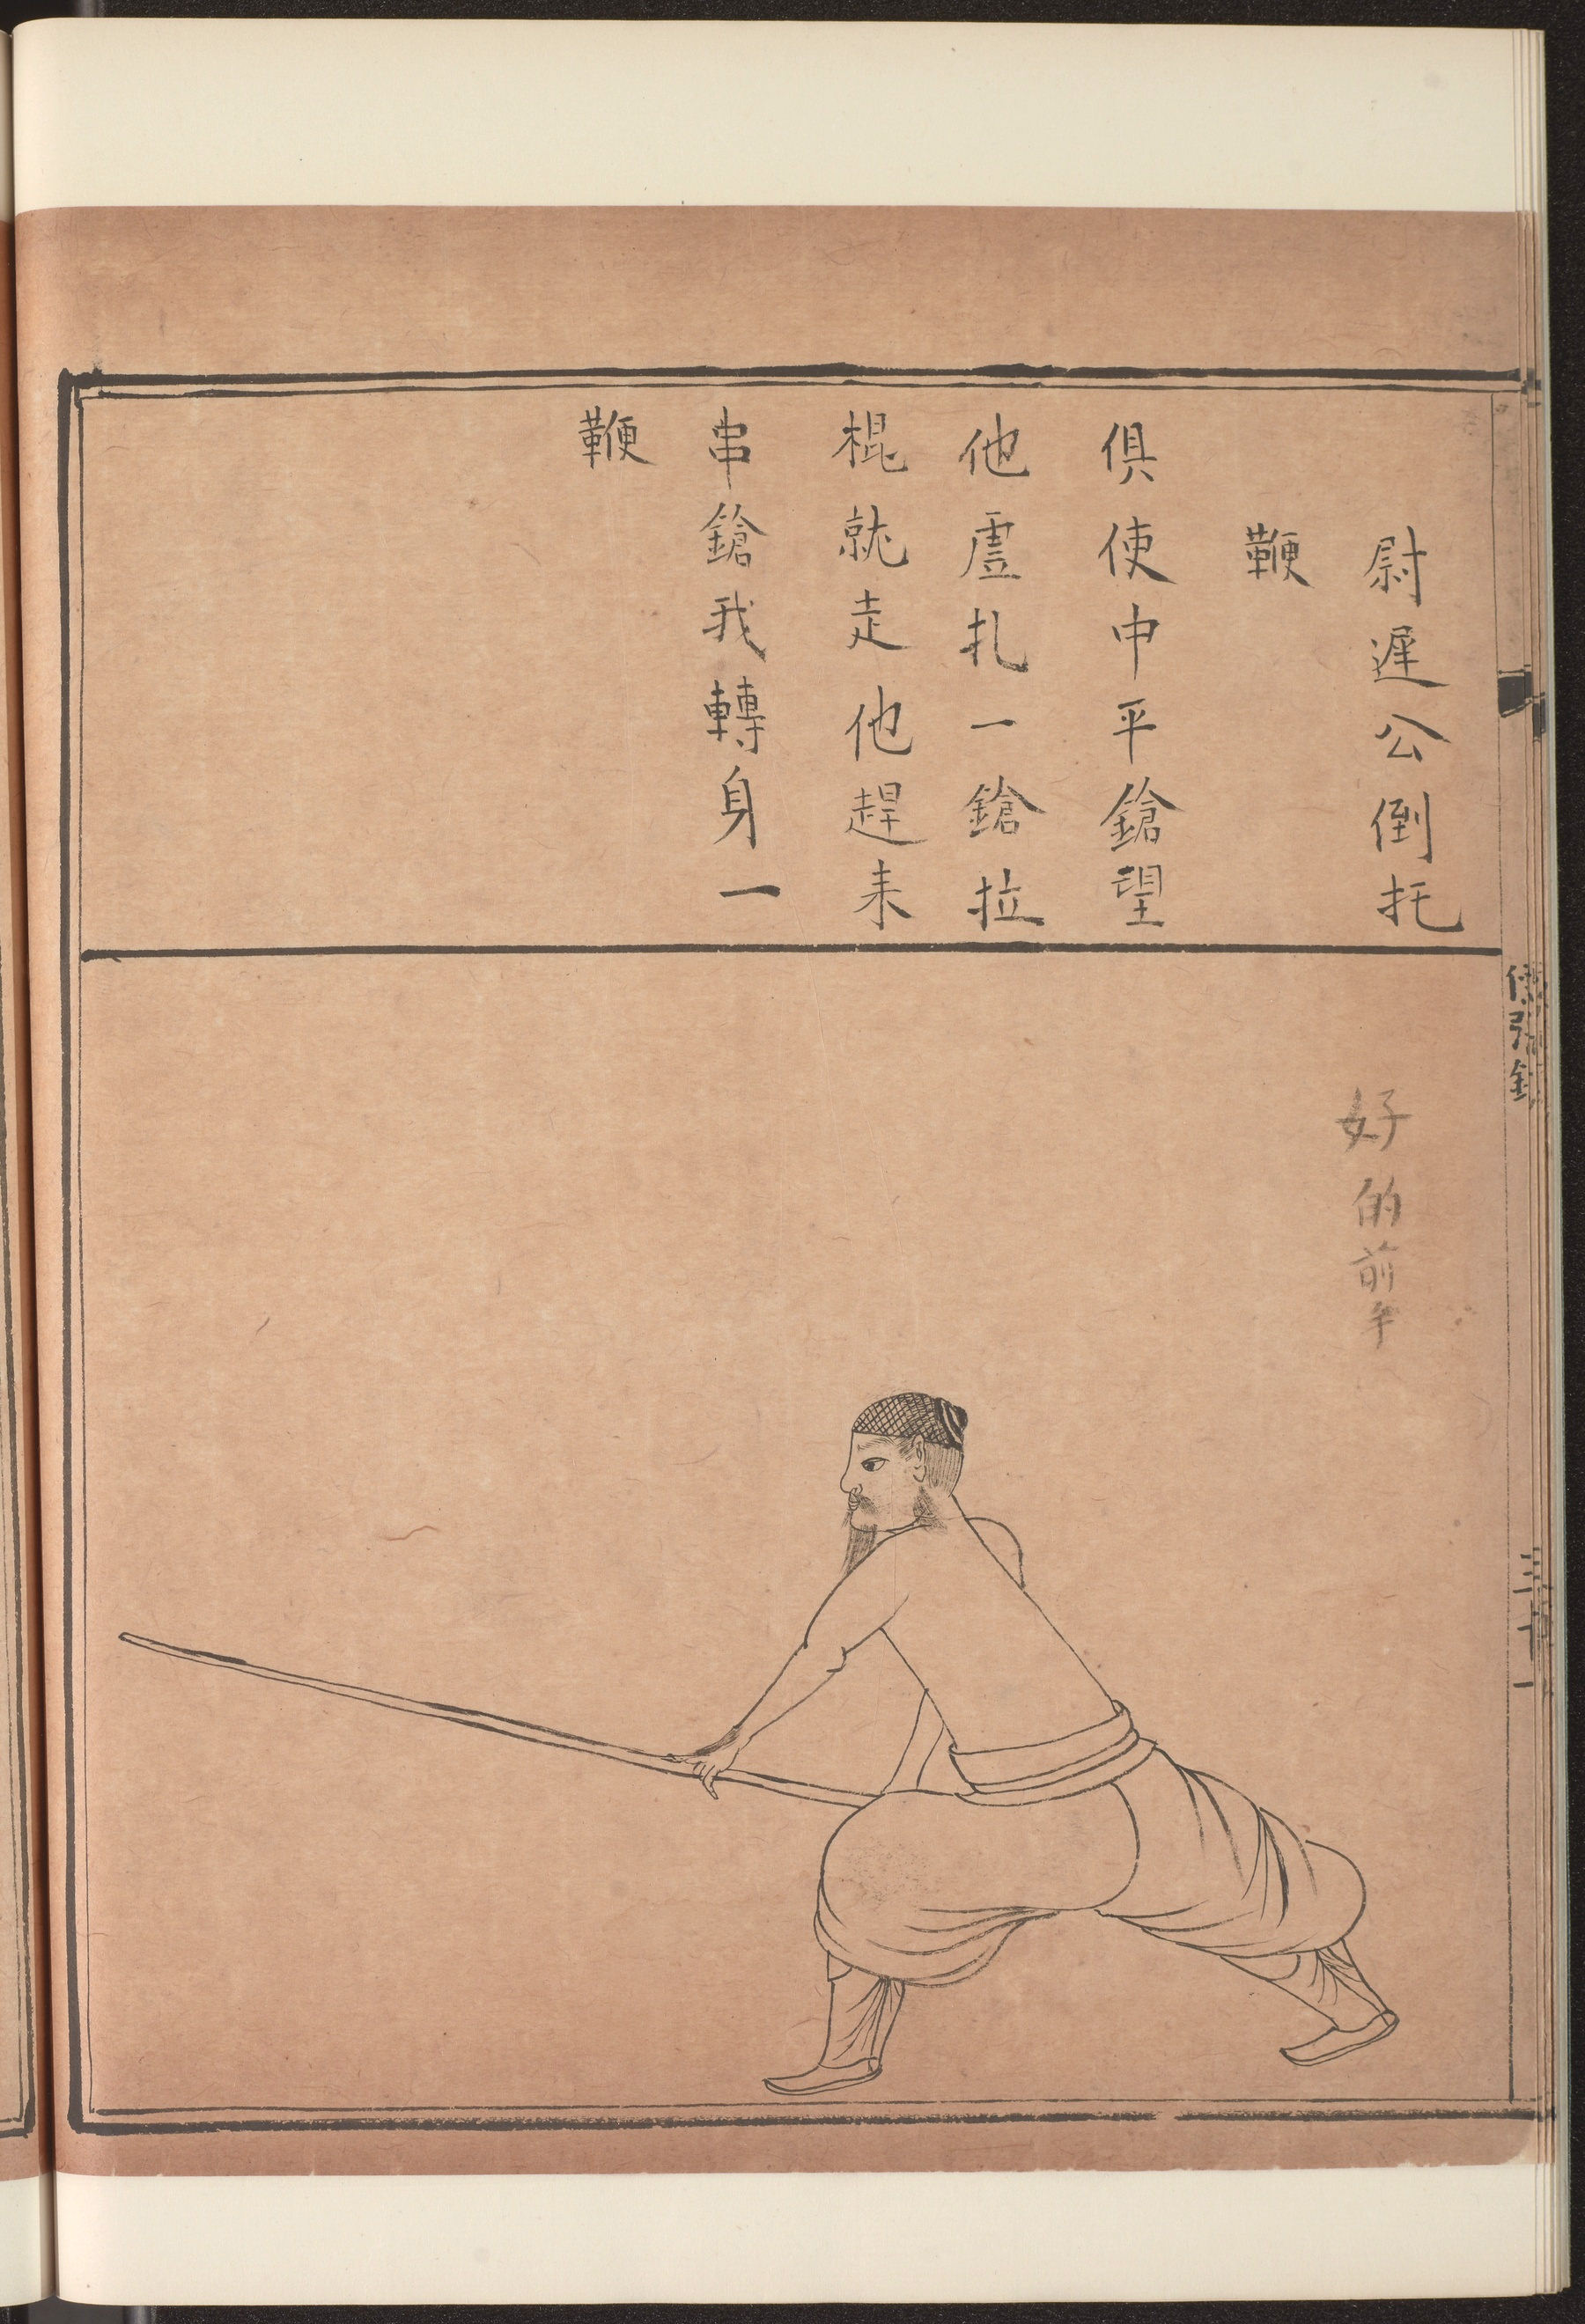 尉遲公倒托
鞭
俱使中平鎗望
他虛扎一鎗拉
棍就走他趕来
串鎗我轉身一
鞭
好的前手
三十一